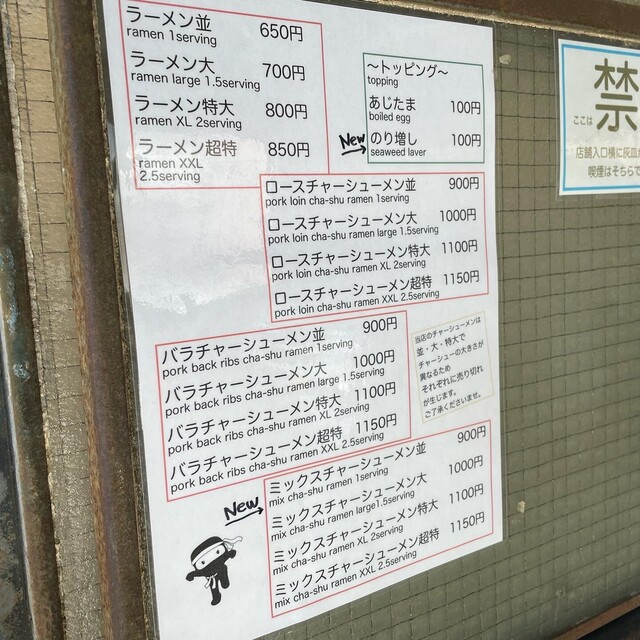 ラーメン並 650円
ramen 1serving
ラーメン大 700円
ramen large 1.5serving
ラーメン特大 800円
ramen XL 2serving
ラーメン超特 850円
ramen XXL
2.5serving
〜トッピング〜
topping
あじたま 100円
boiled egg
New のり増し 100円
seaweed laver
ロースチャーシューメン並 900円
pork loin cha-shu ramen 1serving
ロースチャーシューメン大 1000円
pork loin cha-shu ramen large 1.5serving
ロースチャーシューメン特大 1100円
pork loin cha-shu ramen XL 2serving
ロースチャーシューメン超特 1150円
pork loin cha-shu ramen XXL 2.5serving
バラチャーシューメン並 900円
pork back ribs cha-shu ramen 1serving
バラチャーシューメン大 1000円
pork back ribs cha-shu ramen large 1.5serving
バラチャーシューメン特大 1100円
pork back ribs cha-shu ramen XL 2serving
バラチャーシューメン超特 1150円
pork back ribs cha-shu ramen XXL 2.5serving
当店のチャーシューメンは
並・大・特大で
チャーシューの大きさが
異なるため
それぞれに売り切れ
が生じます。
ご了承くださいませ。
New
ミックスチャーシューメン並 900円
mix cha-shu ramen 1serving
ミックスチャーシューメン大 1000円
mix cha-shu ramen large1.5serving
ミックスチャーシューメン特大 1100円
mix cha-shu ramen XL 2serving
ミックスチャーシューメン超特 1150円
mix cha-shu ramen XXL 2.5serving
禁
ここは
店舗入口横に灰皿が
喫煙はそちらで